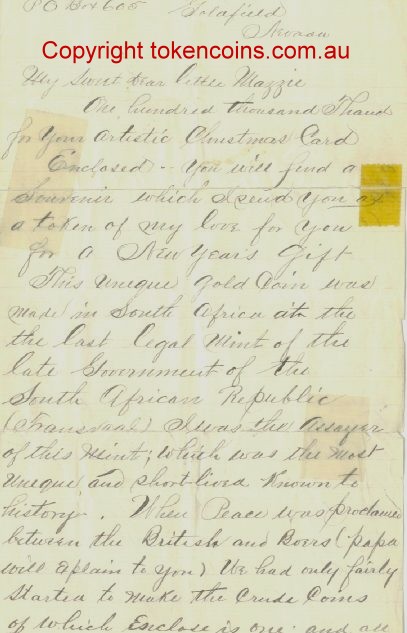 PO Box 605 Goldfield
Nevada
Copyright tokencoins.com.au
My Sweet Dear little Mazzie
One hundred thousand Thank
for your artistic Christmas Card
Enclosed - You will find a
Souvenir which I send you as
a token of my love for you
for a New Year's Gift
This unique gold coin was
made in South Africa at the
the last legal Mint of the
late Government of the
South African Republic
(Transvaal) I was the Assayer
of this Mint; which was the most
unique and short lived Known to
history. When Peace was proclaimed
between the British and Boers (papa
will xplain to you) We had only fairly
started to make the Crude Coins
of which Enclose is one and